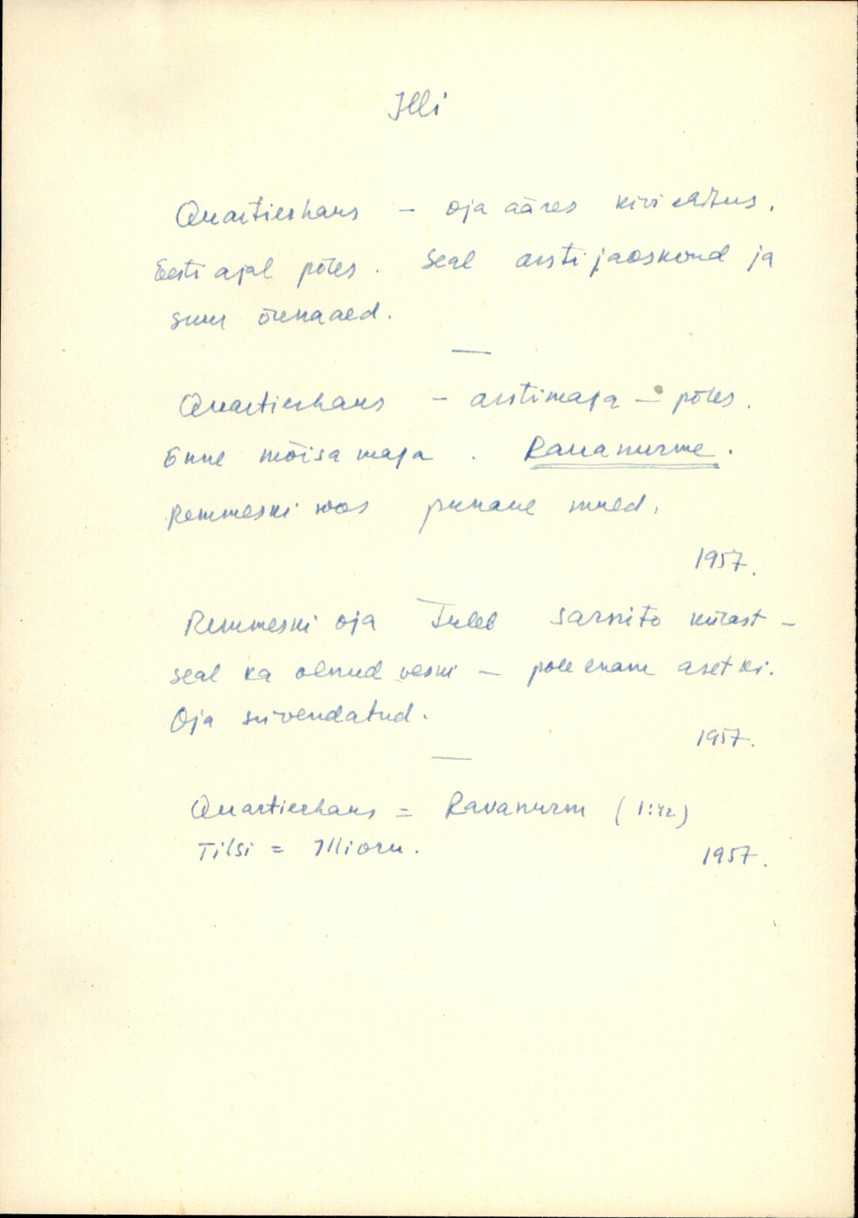 Illi
Quartierhaus – oja ääres kivi ehitus.
Eesti ajal põles. Seal arsti jaoskond ja
suur õunaaed.
—
Quartierhaus – arstimaja – põles.
Enne mõisa maja. Rauanurme.
Remmeski soos punane mued.
1957.
Remmeski oja tuleb külast –
seal ka olnud veski – pole enam aset ki.
Oja süvendatud.
1957.
—
Quartierhaus = Ravanurm (1:42)
Tilsi = Illi oru.
1957.